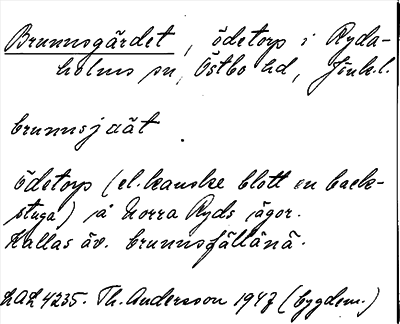 Brunnsgärdet, ödetorp i Ryda-
holms sn, Östbo hd, Jönk.l.
brunnsjaät
Ödetorp (el. kanske blott en back-
stuga) å Norra Ryds ägor.
Kallas äv. brunnsfällänä.
LAL 4235. Th. Andersson 1947 (bygdem.)